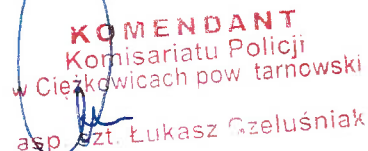 KOMENDANT
Komisariatu Policji
w Ciężkowicach pow tarnowski
asp. szt. Łukasz Czeluśniak